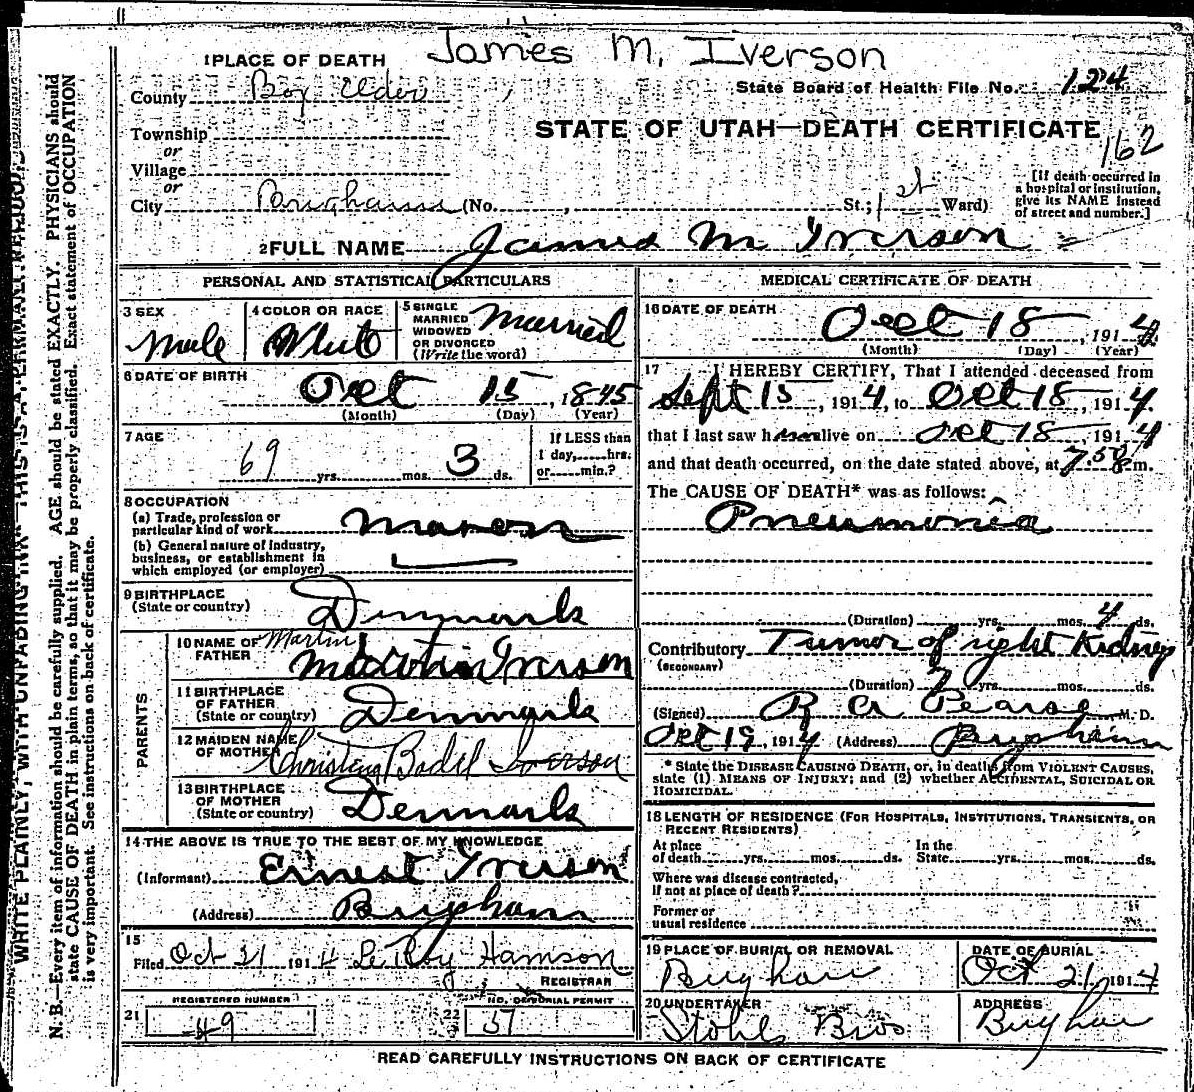 James M. Iverson
1 PLACE OF DEATH
County Box Elder
State Board of Health File No. 124
Township
or
STATE OF UTAH—DEATH CERTIFICATE
162
Village
or
City Brigham (No. , St.; 1st Ward)
[If death occurred in a hospital or institution, give its NAME instead of street and number.]
2 FULL NAME James M Iverson
PERSONAL AND STATISTICAL PARTICULARS
3 SEX
Male
4 COLOR OR RACE
White
5 SINGLE
MARRIED
WIDOWED
OR DIVORCED
(Write the word)
Married
6 DATE OF BIRTH
Oct 15, 1845
(Month) (Day) (Year)
7 AGE
69 yrs. mos. 3 ds.
If LESS than
1 day, hrs.
or min.?
8 OCCUPATION
(a) Trade, profession or
particular kind of work Mason
(b) General nature of industry,
business, or establishment in
which employed (or employer)
9 BIRTHPLACE
(State or country)
Denmark
PARENTS
10 NAME OF
FATHER
Martin
Iverson
11 BIRTHPLACE
OF FATHER
(State or country)
Denmark
12 MAIDEN NAME
OF MOTHER
Christina Bodil Iverson
13 BIRTHPLACE
OF MOTHER
(State or country)
Denmark
14 THE ABOVE IS TRUE TO THE BEST OF MY KNOWLEDGE
(Informant) Ernest Iverson
(Address) Brigham
15
Filed Oct 21 1914 Hamson
REGISTRAR
REGISTERED NUMBER
21 49
NO. OF BURIAL PERMIT
22 51
MEDICAL CERTIFICATE OF DEATH
16 DATE OF DEATH
Oct 18, 1914
(Month) (Day) (Year)
17 I HEREBY CERTIFY, That I attended deceased from
Sept 15, 1914, to Oct 18, 1914.
that I last saw him alive on Oct 18, 1914
and that death occurred, on the date stated above, at 7.50 m.
The CAUSE OF DEATH* was as follows:
Pneumonia
(Duration) yrs. mos. 4 ds.
Contributory Tumor of right Kidney
(SECONDARY)
(Duration) 2 yrs. mos. ds.
(Signed) R A Pearse M. D.
Oct 19, 1914 (Address) Brigham
* State the DISEASE CAUSING DEATH, or, in deaths from VIOLENT CAUSES,
state (1) MEANS OF INJURY; and (2) whether ACCIDENTAL, SUICIDAL OR
HOMICIDAL.
18 LENGTH OF RESIDENCE (FOR HOSPITALS, INSTITUTIONS, TRANSIENTS, OR
RECENT RESIDENTS)
At place
of death yrs. mos. ds.
In the
State yrs. mos. ds.
Where was disease contracted,
If not at place of death?
Former or
usual residence
19 PLACE OF BURIAL OR REMOVAL
Brigham
DATE OF BURIAL
Oct 21, 1914
20 UNDERTAKER
Stohl Bros
ADDRESS
Brigham
READ CAREFULLY INSTRUCTIONS ON BACK OF CERTIFICATE
WRITE PLAINLY, WITH UNFADING INK—THIS IS A PERMANENT RECORD
N. B.—Every item of information should be carefully supplied. AGE should be stated EXACTLY. PHYSICIANS should
state CAUSE OF DEATH in plain terms, so that it may be properly classified. Exact statement of OCCUPATION
is very important. See instructions on back of certificate.